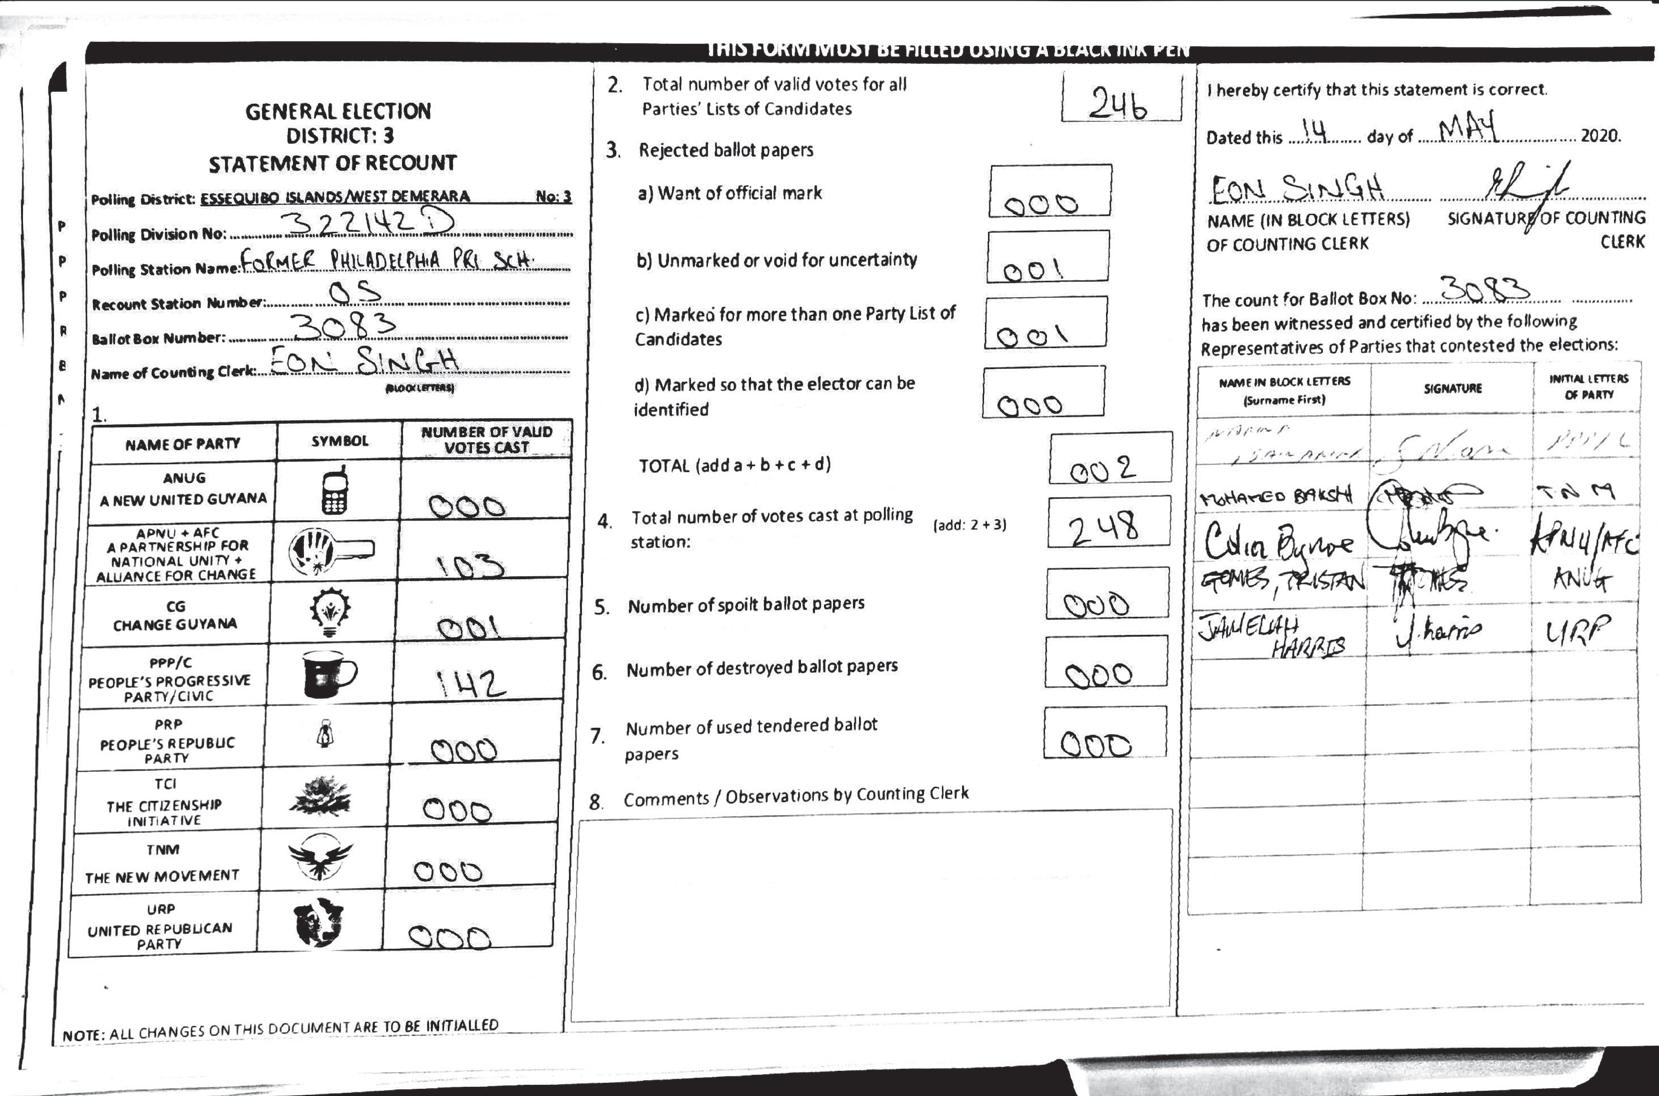 THIS FORM MUST BE FILLED USING A BLACK INK PEN
GENERAL ELECTION
DISTRICT: 3
STATEMENT OF RECOUNT
Polling District: ESSEQUIBO ISLANDS/WEST DEMERARA No: 3
Polling Division No: 322142D
Polling Station Name: FORMER PHILADELPHIA PRI SCH.
Recount Station Number: 05
Ballot Box Number: 3083
Name of Counting Clerk: EON SINGH
(BLOCK LETTERS)
1.
NAME OF PARTY SYMBOL NUMBER OF VALID VOTES CAST
ANUG
A NEW UNITED GUYANA 000
APNU + AFC
A PARTNERSHIP FOR
NATIONAL UNITY +
ALLIANCE FOR CHANGE 103
CG
CHANGE GUYANA 001
PPP/C
PEOPLE'S PROGRESSIVE
PARTY/CIVIC 142
PRP
PEOPLE'S REPUBLIC
PARTY 000
TCI
THE CITIZENSHIP
INITIATIVE 000
TNM
THE NEW MOVEMENT 000
URP
UNITED REPUBLICAN
PARTY 000
NOTE: ALL CHANGES ON THIS DOCUMENT ARE TO BE INITIALLED
2. Total number of valid votes for all
Parties' Lists of Candidates 246
3. Rejected ballot papers
a) Want of official mark 000
b) Unmarked or void for uncertainty 001
c) Marked for more than one Party List of
Candidates 001
d) Marked so that the elector can be
identified 000
TOTAL (add a + b + c + d) 002
4. Total number of votes cast at polling
station: (add: 2 + 3) 248
5. Number of spoilt ballot papers 000
6. Number of destroyed ballot papers 000
7. Number of used tendered ballot
papers 000
8. Comments / Observations by Counting Clerk
I hereby certify that this statement is correct.
Dated this 14 day of MAY 2020.
EON SINGH
NAME (IN BLOCK LETTERS) SIGNATURE OF COUNTING
OF COUNTING CLERK CLERK
The count for Ballot Box No: 3083
has been witnessed and certified by the following
Representatives of Parties that contested the elections:
NAME IN BLOCK LETTERS SIGNATURE INITIAL LETTERS
(Surname First) OF PARTY
PPP/C
MOHAMED BAKSH TNM
Colin Bynoe APNU/AFC
GOMES, TRISTAN ANUG
JAMELAH
HARRIS J.harris URP